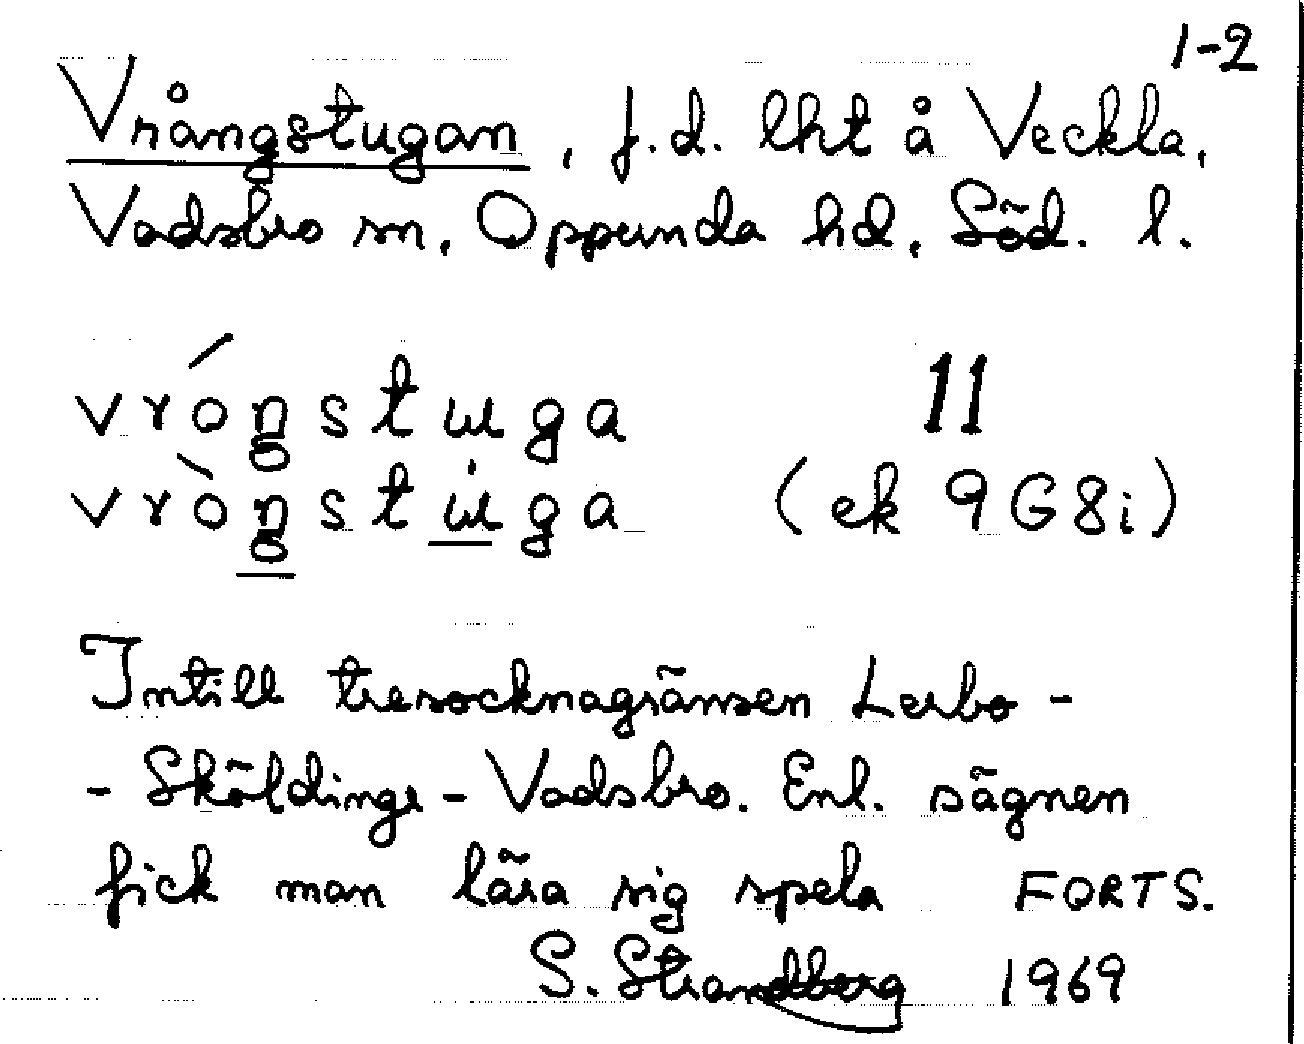 1-2
Vrångstugan, f.d. lht å Veckla,
Vadsbro sn, Oppunda hd, Söd. l.
vróŋstɯga 11
vròŋstɯ̇ga (ek 9G8i)
Intill tresocknagränsen Lerbo -
- Sköldinge - Vadsbro. Enl. sägnen
fick man lära sig spela FORTS.
S. Strandberg 1969